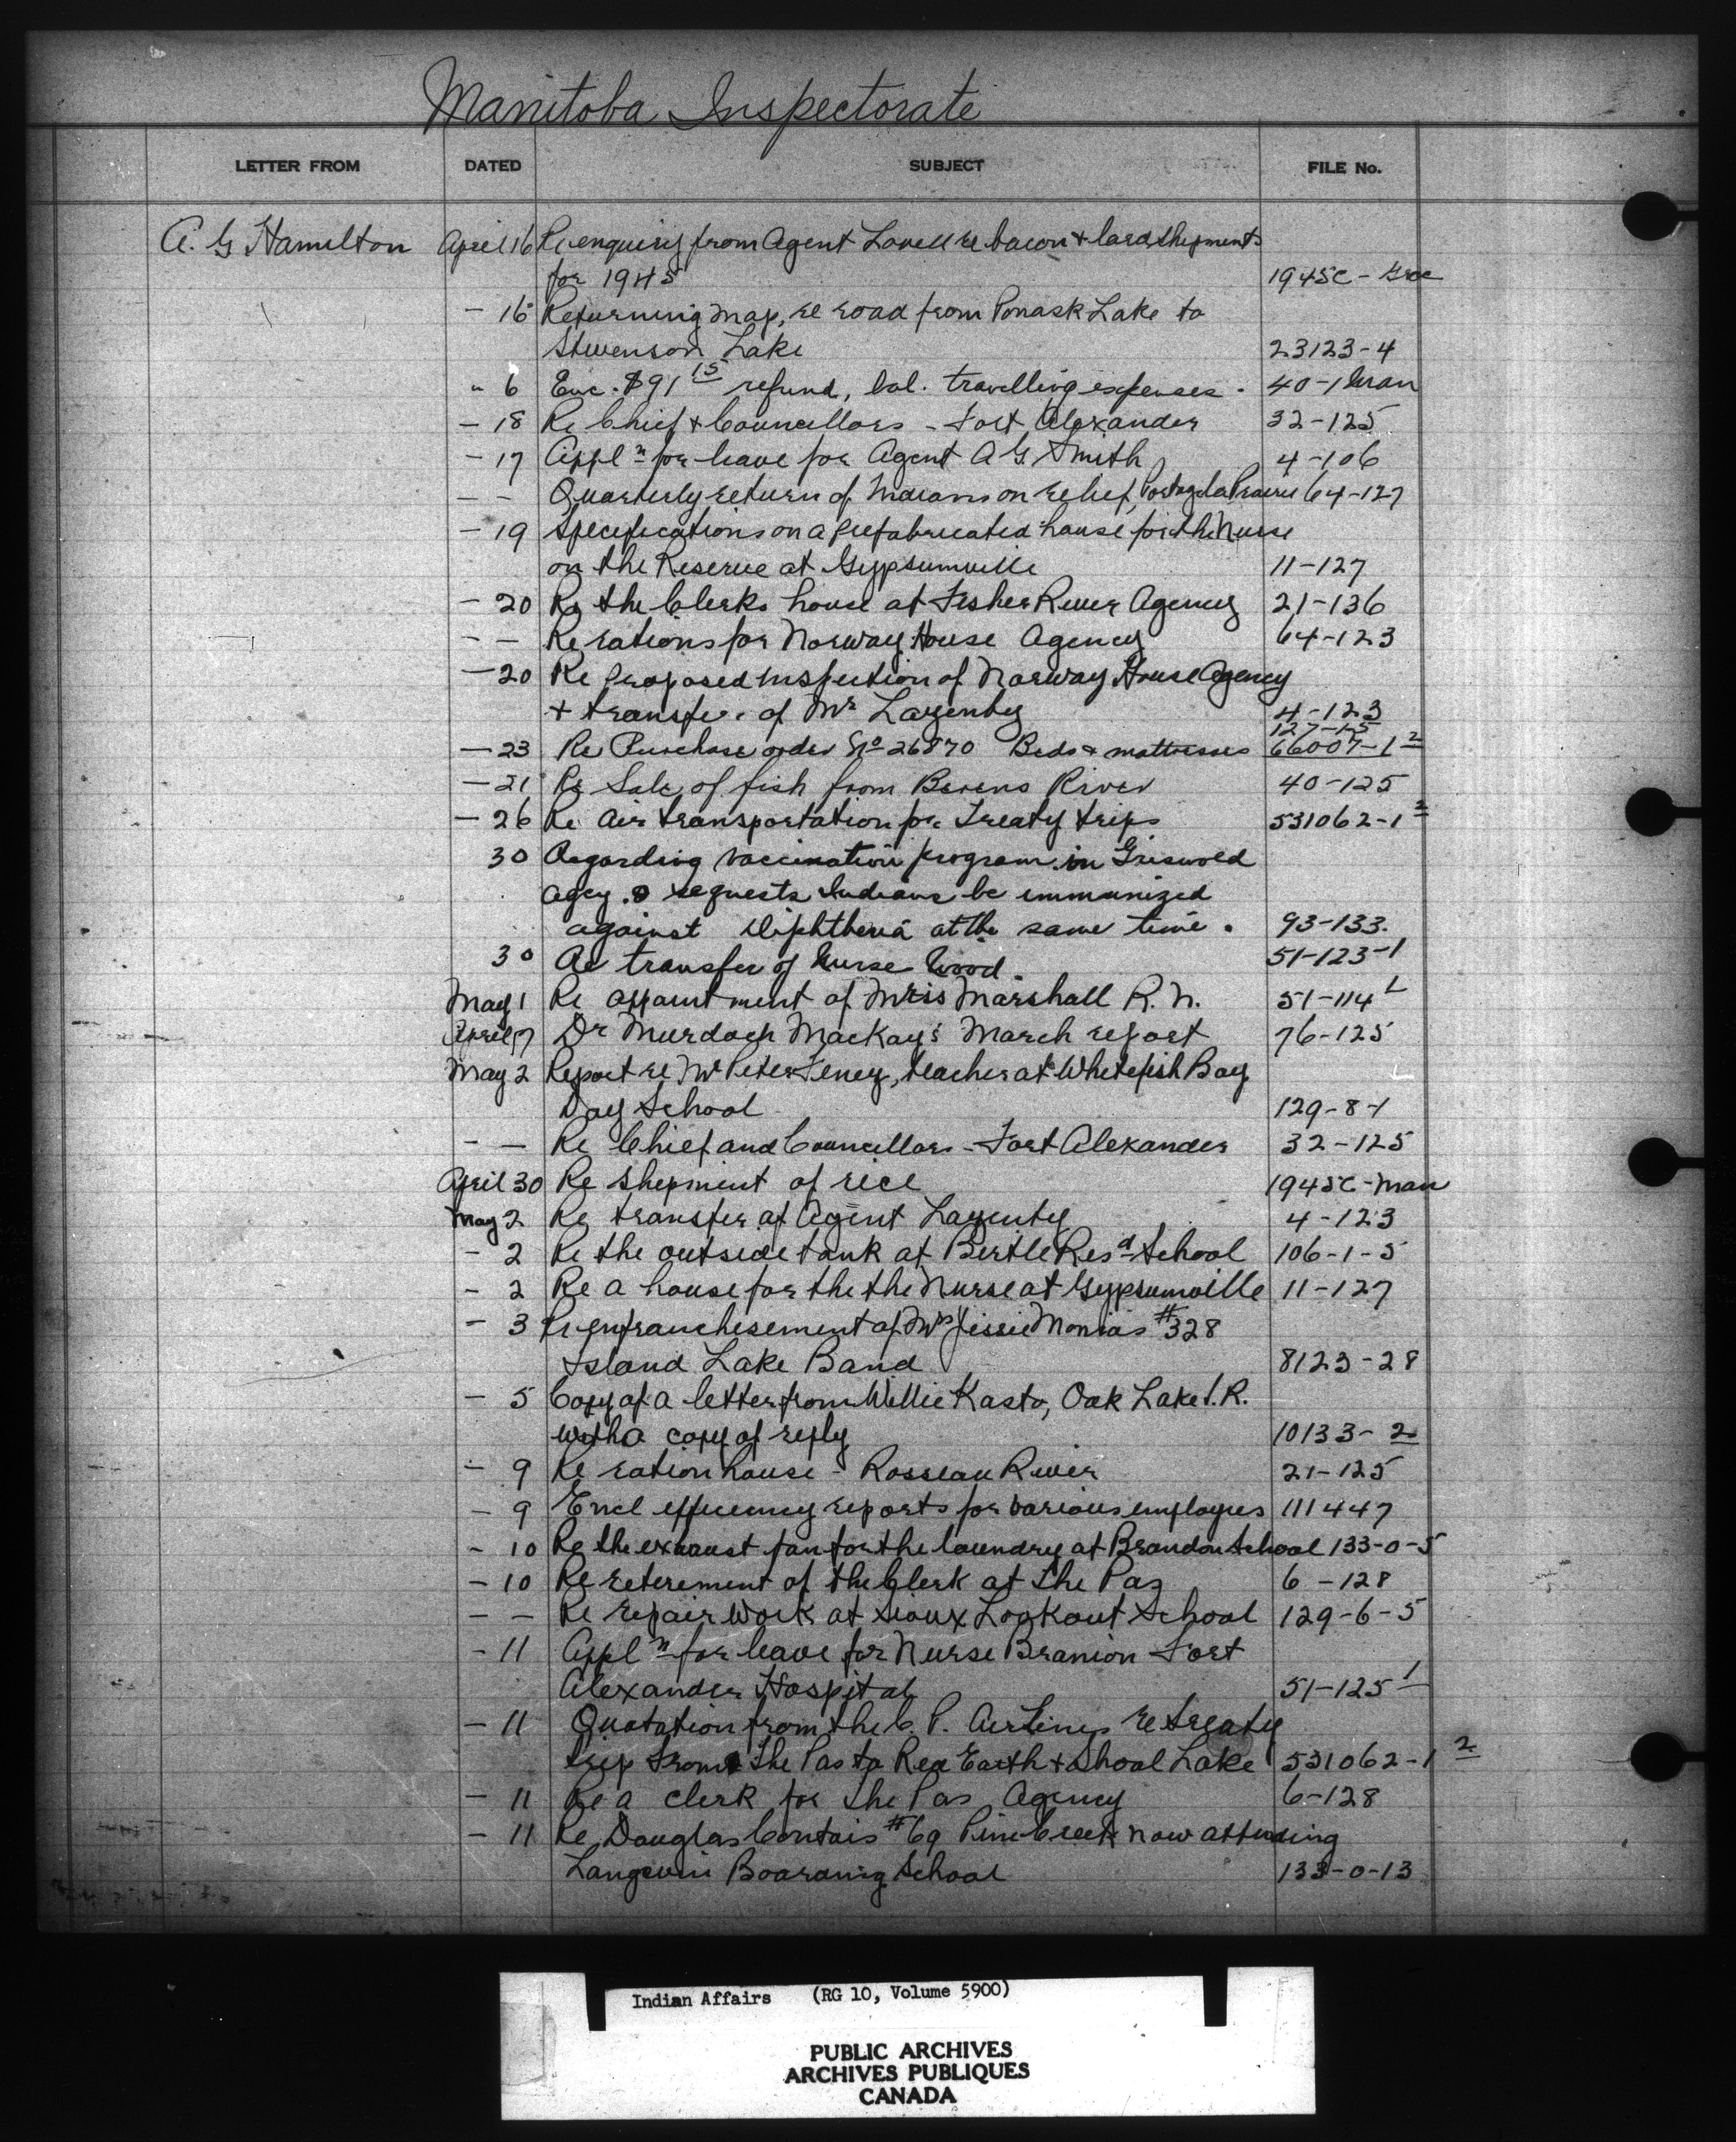 Manitoba Inspectorate
LETTER FROM DATED SUBJECT FILE No.
A. G Hamilton April 16 Re enquiry from Agent Lovell re bacon & lard shipments
for 1945 1945C -
- 16 Returning map, re road from Ponask Lake to
Stevenson Lake 23123-4
" 6 Enc. $91 15 refund, bal. travelling expenses. 40-1 Man
- 18 Re Chief & Councellors - Fort Alexander 32-125
- 17 Appl n for leave for Agent A G. Smith 4-106
- - Quarterly return of Indians on relief, Portage la Prairie 64-127
- 19 Specifications on a prefabricated house for the Nurse
on the Reserve at Gypsumville 11-127
- 20 Re the Clerks house at Fisher River Agency 21-136
- - Re rations for Norway House Agency 64-123
- 20 Re proposed inspection of Norway House Agency
& transfer of Mr Lazenby 4-123
127-1-5
- 23 Re Purchase order No 26870 Beds & mattresses 66007-1 2
- 21 Re Sale of fish from Berens River 40-125
- 26 Re Air transportation for Treaty trips 531062-1 2
30 Regarding vaccination program in Griswold
Agcy. & requests Indians be immunized
against Diphtheria at the same time. 93-133.
30 Re transfer of Nurse Wood. 51-123-1
May 1 Re appointment of Miss Marshall R. N. 51-114 1
April 7 Dr Murdoch MacKay's March report 76-125
May 2 Report re Mr Peter Feney, teacher at Whitefish Bay
Day School 129-8-1
- - Re Chief and Councellors - Fort Alexander 32-125
April 30 Re shipment of rice 1945C-Man
May 2 Re transfer of Agent Lazenby 4-123
- 2 Re the outside tank at Birtle Res d School 106-1-5
- 2 Re a house for the the Nurse at Gypsumville 11-127
- 3 Re enfranchisement of Mrs Jessie Monias #328
Island Lake Band 8123-28
- 5 Copy of a letter from Willie Kasto, Oak Lake I.R.
with a copy of reply 10133-2
- 9 Re ration house - Rosseau River 21-125
- 9 Encl efficiency reports for various employees 111447
- 10 Re the exhaust fan for the laundry at Brandon School 133-0-5
- 10 Re retirement of the Clerk at The Pas 6-128
- - Re repair work at Sioux Lookout School 129-6-5
- 11 Appl n for leave for Nurse Branion Fort
Alexander Hospital 51-125 1
- 11 Quotation from the C. P. Air Lines re treaty
trip from The Pas to Red Earth & Shoal Lake 531062-1 2
- 11 Re a clerk for The Pas Agency 6-128
- 11 Re Douglas Contois #69 Pine Creek now attending
Langevin Boarding School 133-0-13
Indian Affairs (RG 10, Volume 5900)
PUBLIC ARCHIVES
ARCHIVES PUBLIQUES
CANADA